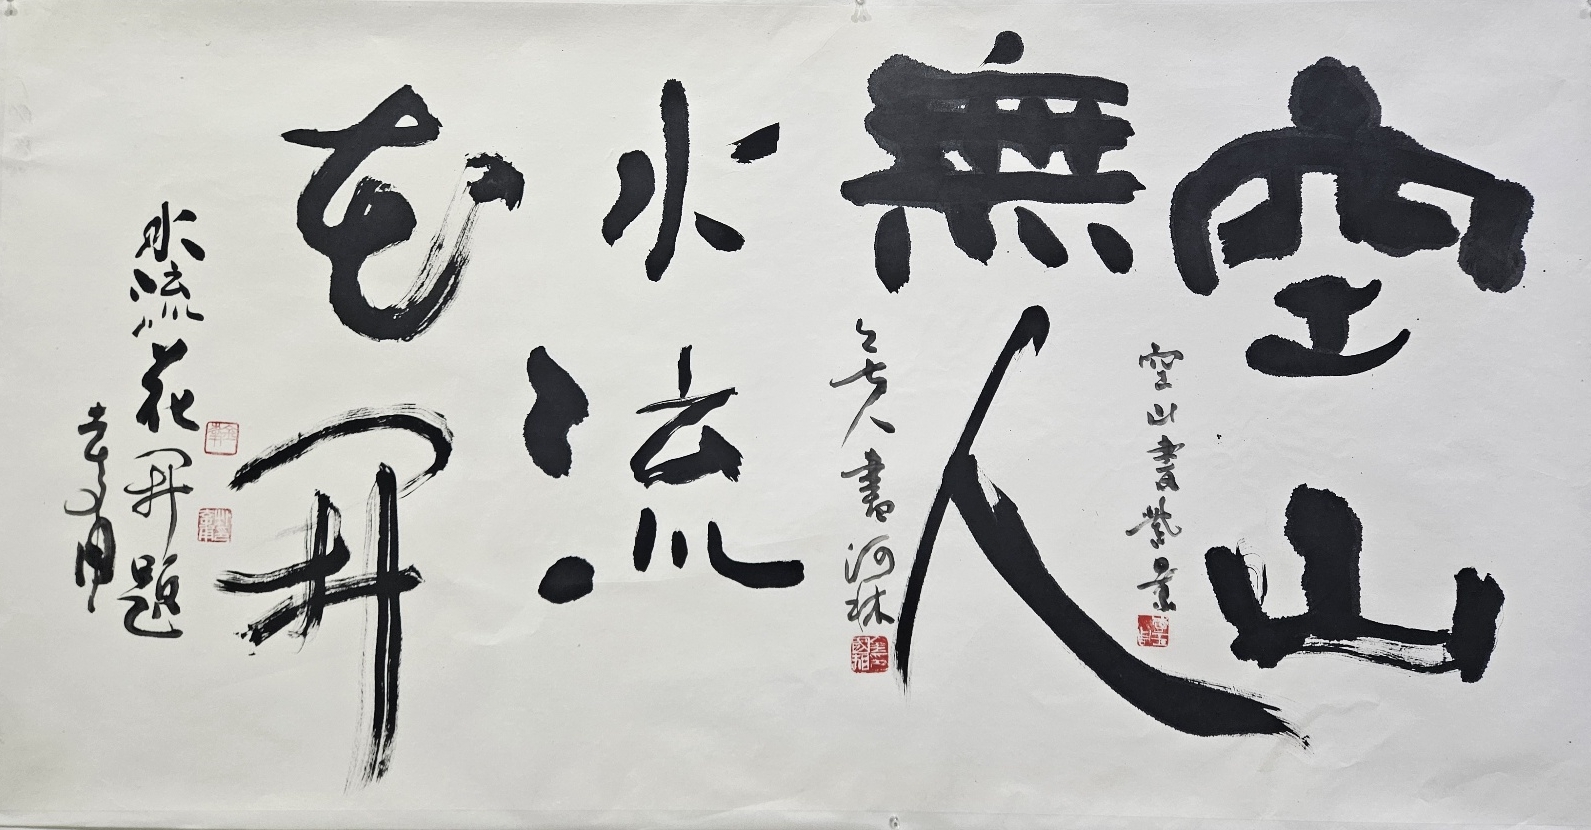 空山
無人
水流
花開
空山書
無人書河林
水流花開題